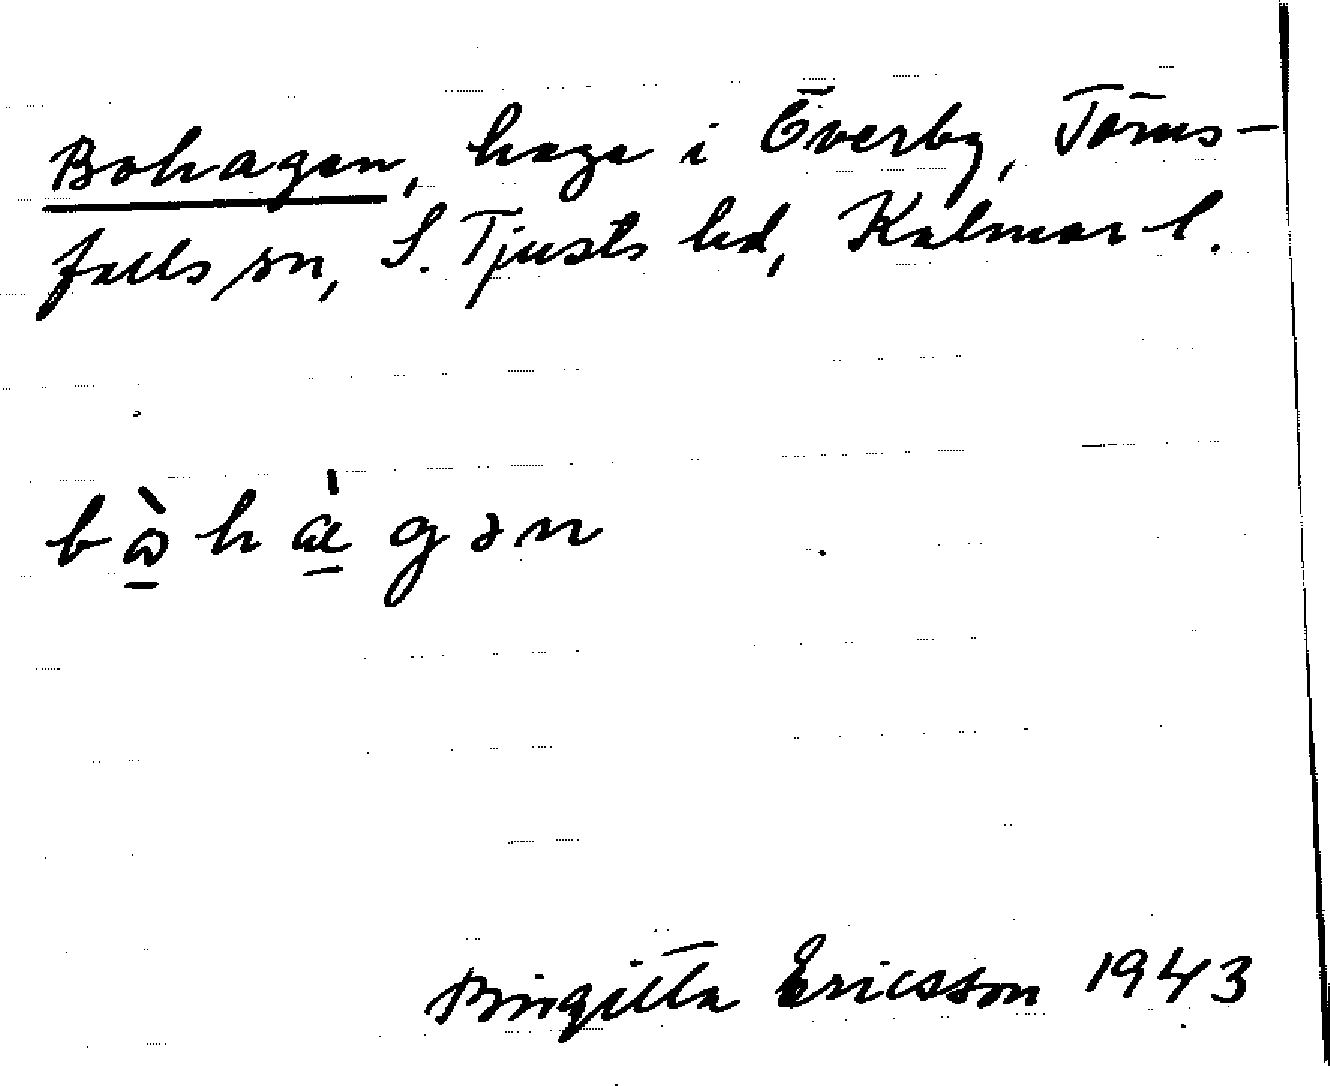 Bohagen, hage i Överby, Törns-
falls sn, S. Tjusts hd, Kalmar l.
bὼhàgən
Birgitta Ericsson 1943